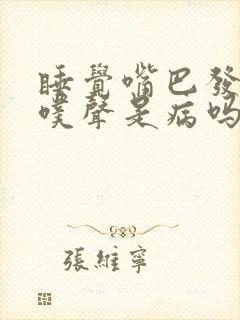 睡覺嘴巴發
噗聲是病吗
張維寧